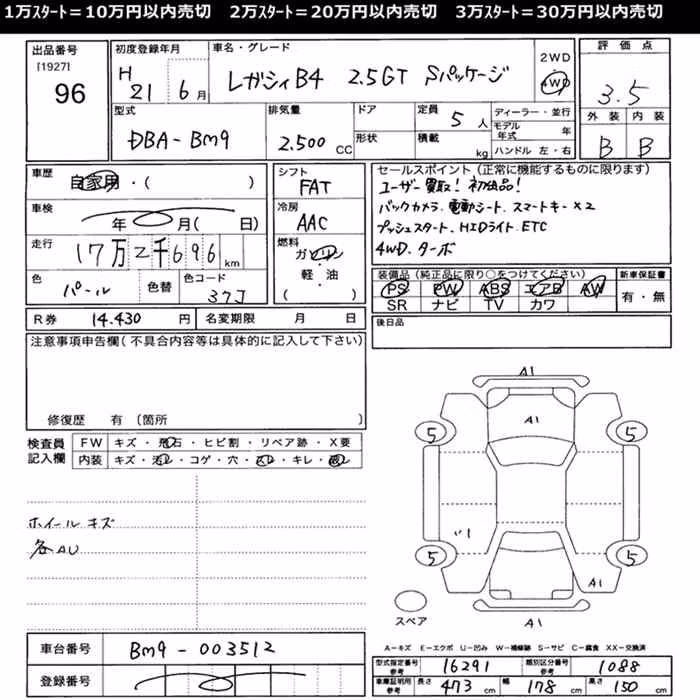 1万ｽﾀｰﾄ＝10万円以内売切　2万ｽﾀｰﾄ＝20万円以内売切　3万ｽﾀｰﾄ＝30万円以内売切
出品番号 [1927] 96
初度登録年月 H 21 6月
車名・グレード レガシィB4 2.5GT Sパッケージ
2WD 4WD
評価点 3.5
外装 内装
B B
型式 DBA-BM9
排気量 2.500 CC
ドア 形状
定員 5人
積載 kg
ディーラー・並行
モデル年式 年
ハンドル 左・右
車歴 自家用・( )
車検 年 月( 日)
走行 17万2千696 km
色 パール 色替 色コード 37J
シフト FAT
冷房 AAC
燃料 ガソリン・軽・油 ( )
セールスポイント(正常に機能するものに限ります)
ユーザー買取! 初出品!
バックカメラ. 電動シート. スマートキー×2
プッシュスタート. HIDライト. ETC
4WD. ターボ
装備品(純正品に限り○をつけてください) 新車保証書
PS PW ABS エアB AW 有・無
SR ナビ TV カワ
R券 14.430 円 名変期限 月 日
後日品
注意事項申告欄(不具合内容等は具体的に記入して下さい)
修復歴 有 〔箇所 〕
検査員記入欄 FW キズ・飛石・ヒビ割・リペア跡・X要
内装 キズ・汚レ・コゲ・穴・スレ・キレ・
ホイールキズ
各AU
A1
A1
5 5
5 5
A1
A1
スペア
A-キズ E-エクボ U-凹み W-補修跡 S-サビ C-腐食 XX-交換済
車台番号 BM9-003512
登録番号
型式指定番号 参考 16291 類別区分番号 参考 1088
車庫証明用 参考 長さ 473 cm 幅 178 cm 高さ 150 cm